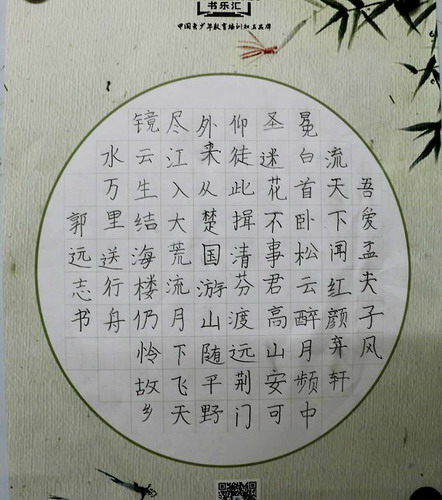 书乐汇
中国青少年教育培训知名品牌
吾爱孟夫子风
流天下闻红颜弃轩
冕白首卧松云醉月频中
圣迷花不事君高山安可
仰徒此揖清芬渡远荆门
外来从楚国游山随平野
尽江入大荒流月下飞天
镜云生结海楼仍怜故乡
水万里送行舟
郭远志书